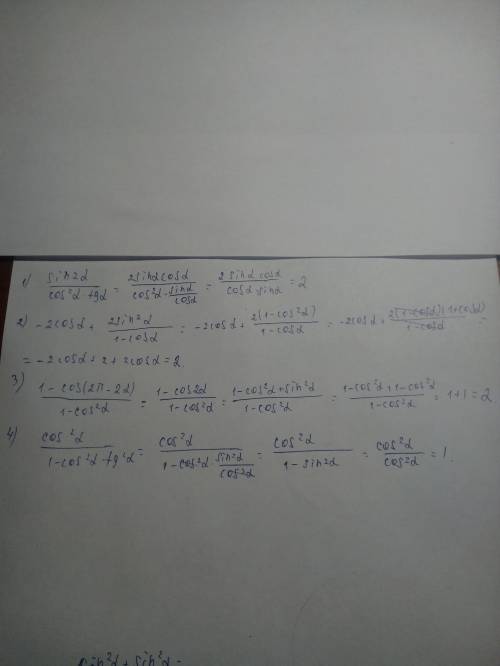 1) sin2α / cos²α tgα = 2sinα cosα / cos²α · sinα/cosα = 2 sinα cosα / cosα · sinα = 2
2) -2cosα + 2sin²α / 1-cosα = -2cosα + 2(1-cos²α) / 1-cosα = -2cosα + 2(1-cosα)(1+cosα) / 1-cosα =
= -2cosα + 2 + 2cosα = 2.
3) 1 - cos(2π - 2α) / 1-cos²α = 1-cos2α / 1-cos²α = 1-cos²α + sin²α / 1-cos²α = 1-cos²α + 1-cos²α / 1-cos²α = 1+1 = 2
4) cos²α / 1-cos²α · tg²α = cos²α / 1-cos²α · sin²α/cos²α = cos²α / 1 - sin²α = cos²α / cos²α = 1.
sin²α + sin²α